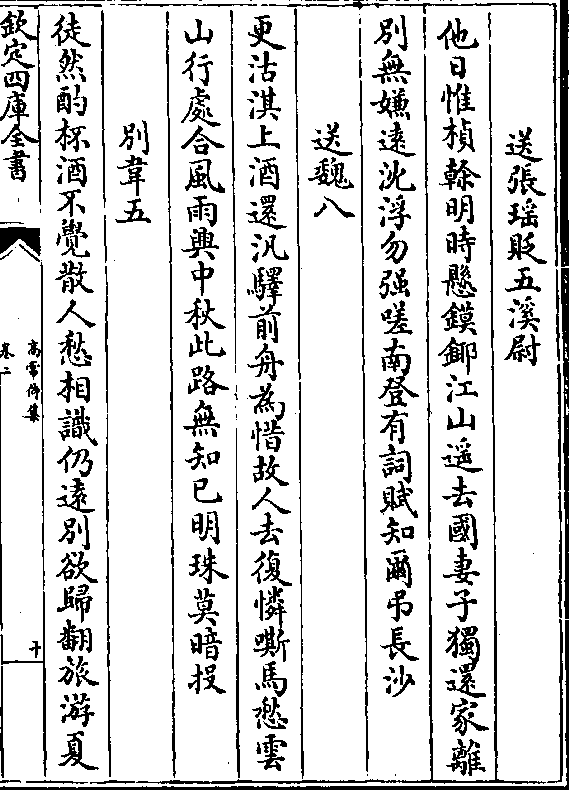 送張瑶貶五溪尉
他日惟楨榦明時懸鏌鎁江山遥去國妻子獨還家離
别無嫌逺沈浮勿强嗟南登有詞賦知爾弔長沙
送魏八
更沽淇上酒還汎驛前舟為惜故人去復憐嘶馬愁雲
山行處合風雨興中秋此路無知已明珠莫暗投
别韋五
徒然酌杯酒不覺散人愁相識仍逺别欲歸翻旅游夏
欽定四庫全書
卷二